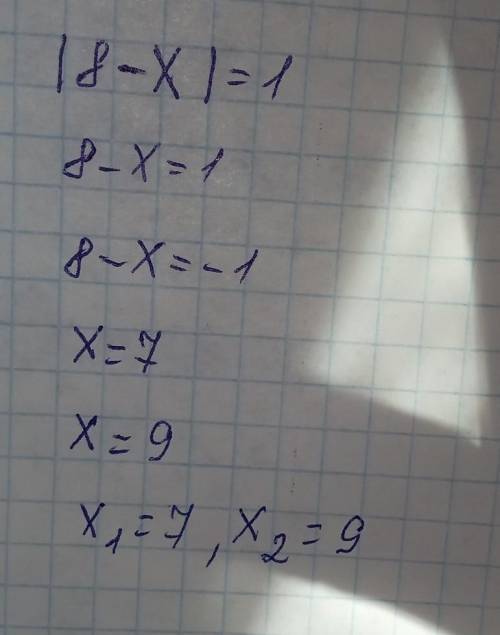 |8-x|=1
8-x=1
8-x=-1
x=7
x=9
x₁=7, x₂=9